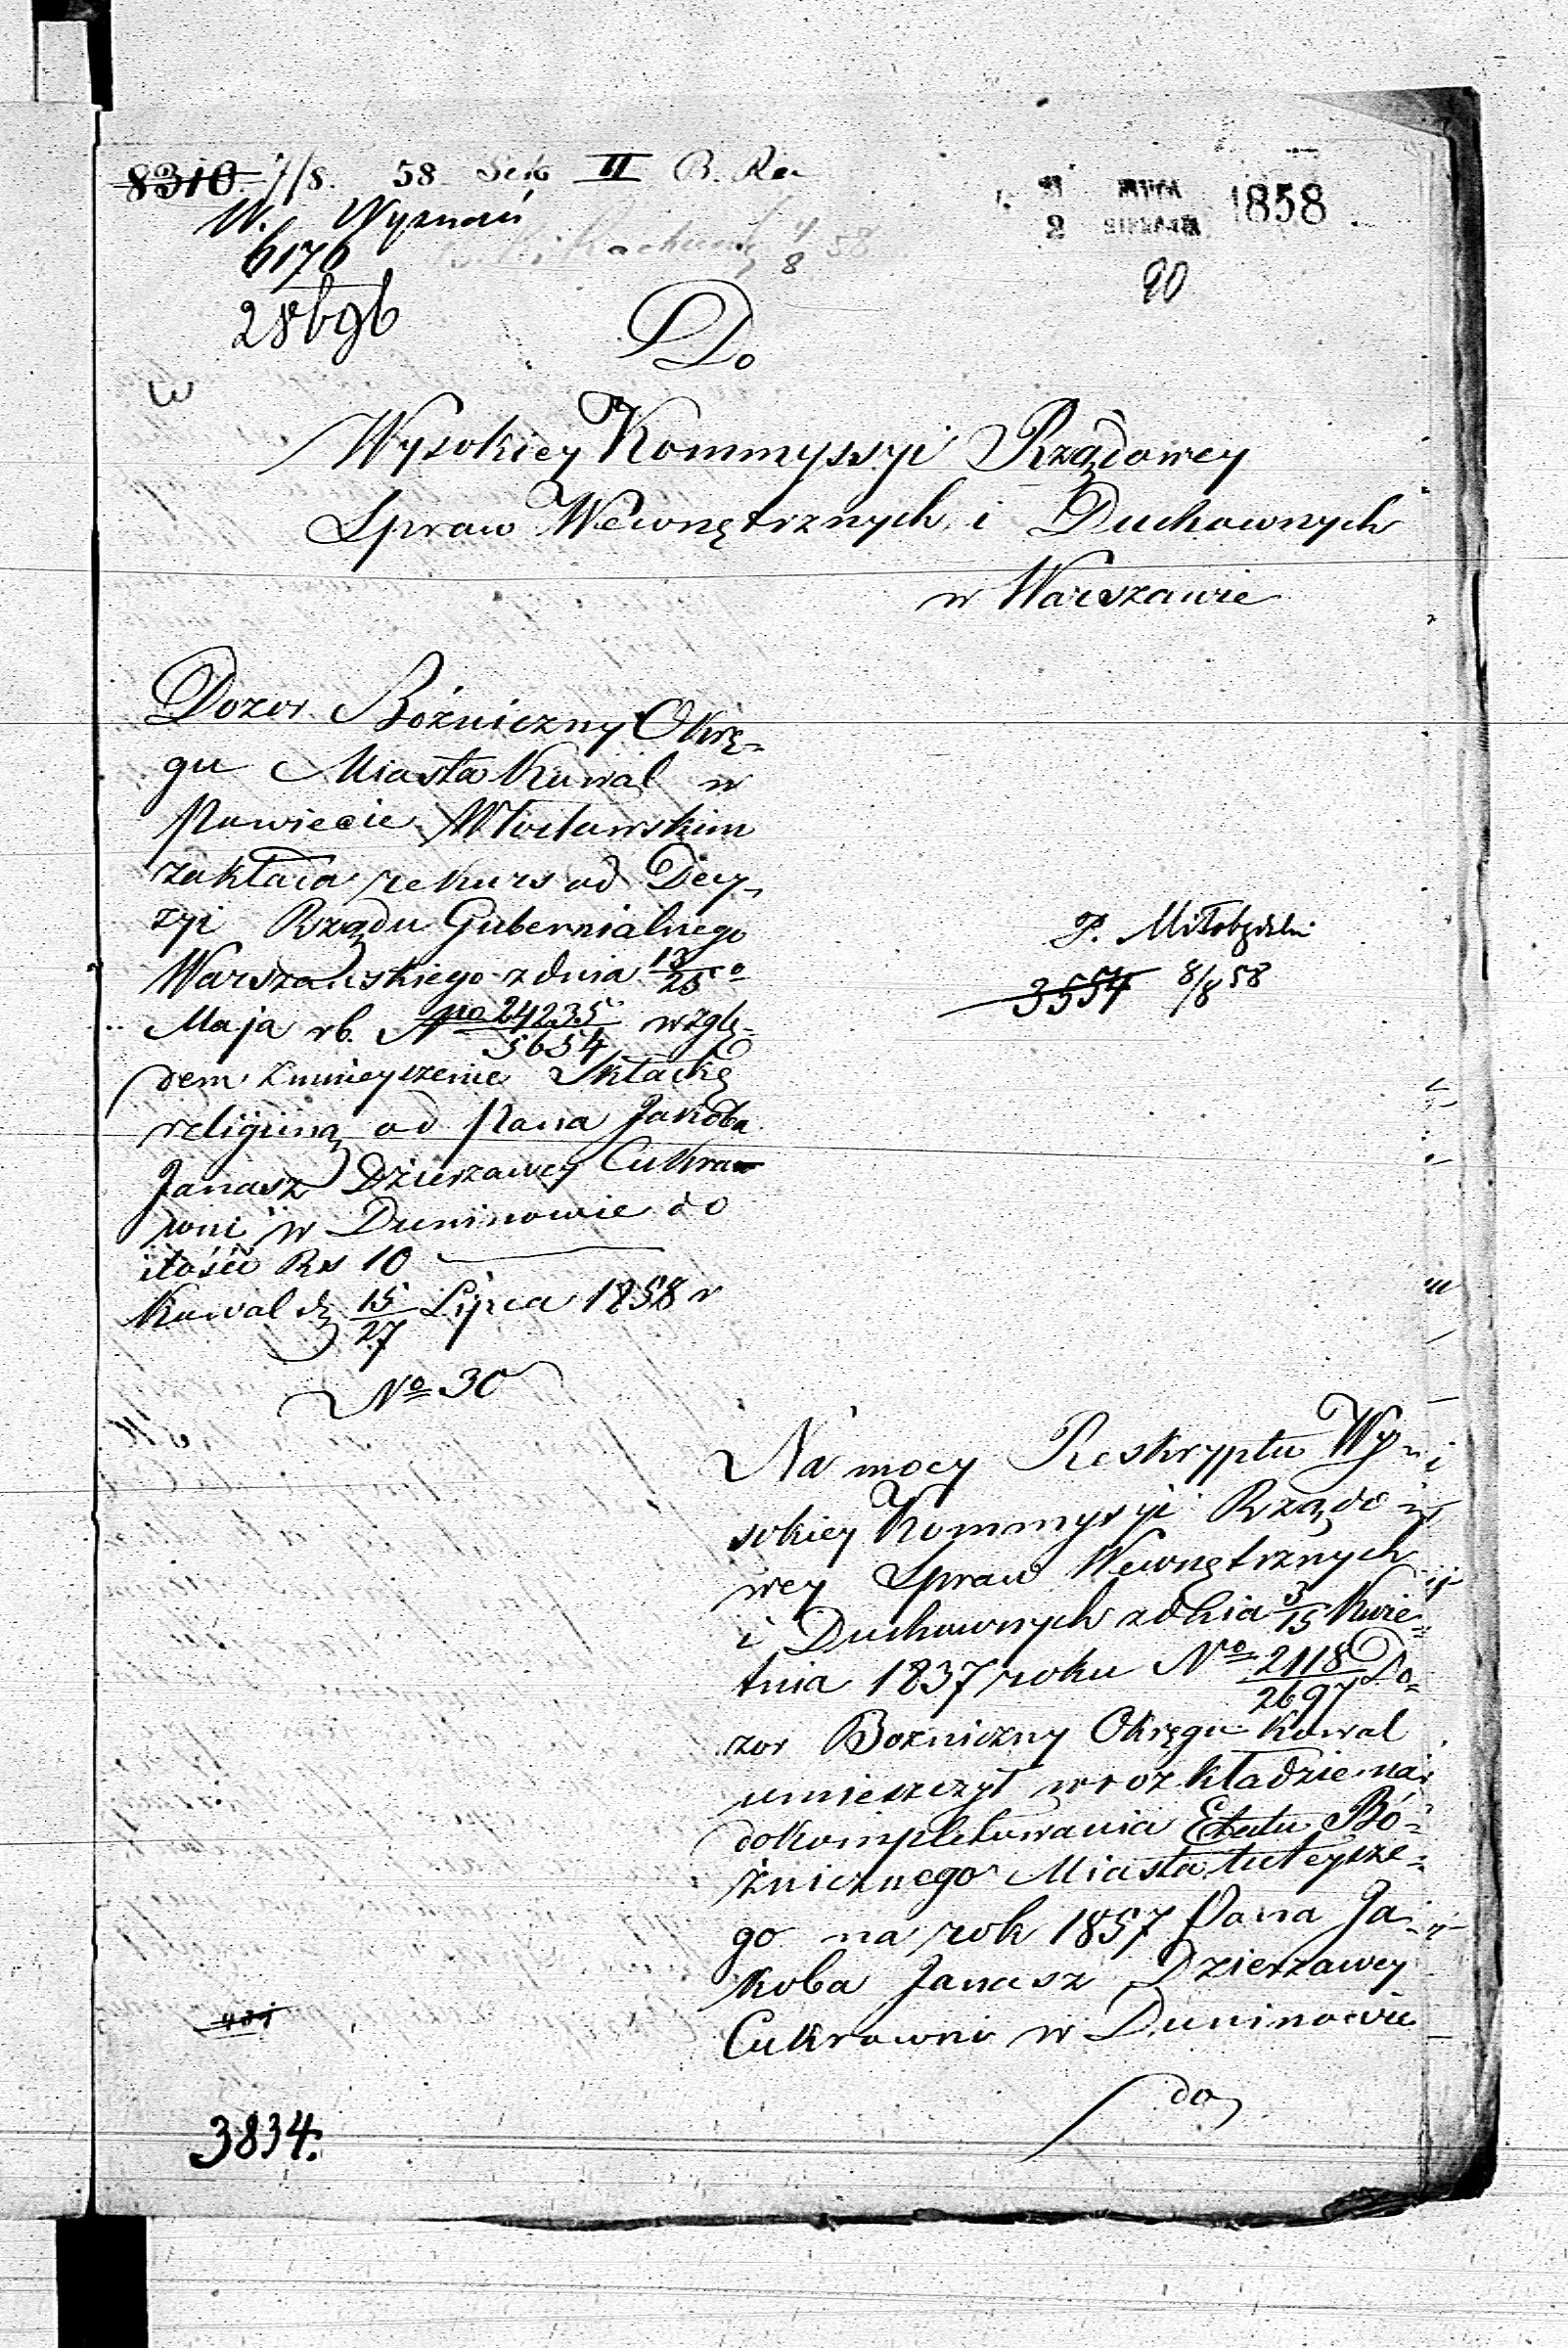 8310 7/8. 58 Sek II B. Re
W. Wyznań
6176
28696
21 ЛИПЦА 1858
2 SIERPNIA
4/8 58
90
Do
Wysokiey Kommyssyi Rządowey
Spraw Wewnętrznych i Duchownych
w Warszawie
Dozor Bóżniczny Okrę-
gu Miasta Kowal w
Powiecie Włocławskim
zakłada rekurs od Decy-
zyi Rządu Gubernialnego
Warszawskiego z dnia 13/25go
Maja rb. No 24235/5654 wzglę-
dem zmnieyszenie Składkę
religiiną od Pana Jakoba
Janasz Dzierzawcy Cukro-
wni w Duninowie do
ilości Rs 10
Kowal d. 15/27 Lipca 1858 r
No 30
P. Miłobędzki
3554 8/8 58
Na mocy Reskryptu Wy-
sokiey Kommyssyi Rządo-
wey Spraw Wewnętrznych
i Duchownych z dnia 3/15 Kwie-
tnia 1837 roku No 2118/2697 Do-
zor Bozniczny Okręgu Kowal
umieszczył w rozkładzie na
dokompletowania Etatu Bó-
żnicznego Miasta tuteysze-
go na rok 1857 Pana Ja-
koba Janasz Dzierzawcy
Cukrowni w Duninowie
do
3834.